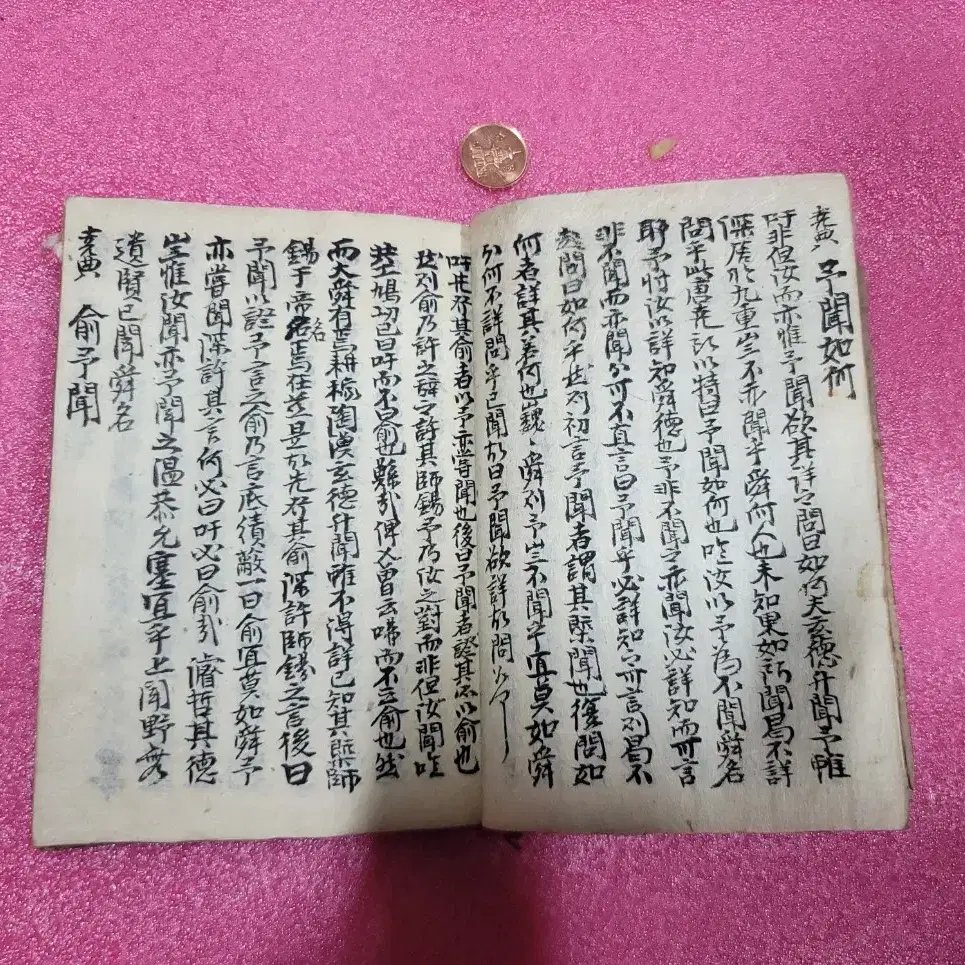 堯典 予聞如何
吁非但汝而亦惟予聞欲其詳問曰如何夫玄德升聞予雖
深居於九重豈不亦聞乎舜何人也未知果如所聞曷不詳
問乎此堯所以特曰予聞如何也 汝以予為不聞舜名
耶予 汝以詳知舜德也予非不聞之亦聞汝必詳知而可言
非不聞而亦聞則可不直言曰予聞乎必詳知而可言則曷不
問曰如何乎然則初言予聞者謂其槩聞也後問如
何者詳其若何也巍〻舜則予豈不聞乎宜莫如舜
則何不詳問乎已聞故曰予聞欲詳故問
吁先於其俞者以予亦嘗聞也後曰予聞者證其所以俞也
然則俞乃許之辭可許其師錫予乃汝之對而非但汝聞
鳩功已曰吁而不曰俞也雖引俾乂曾云咈而不云俞也然
而大舜有焉耕稼陶漁玄德升聞雖不得詳已知其槩師
錫于帝名焉在玆是以先於其俞深許師錫之言後曰
予聞以證予言之俞乃言底績敢一曰俞宜莫如舜予
亦嘗聞深許其言何必曰吁必曰俞引濬哲其德
豈惟汝聞亦予聞之溫恭允塞宜乎上聞野無
遺賢已聞舜名
堯典 俞予聞